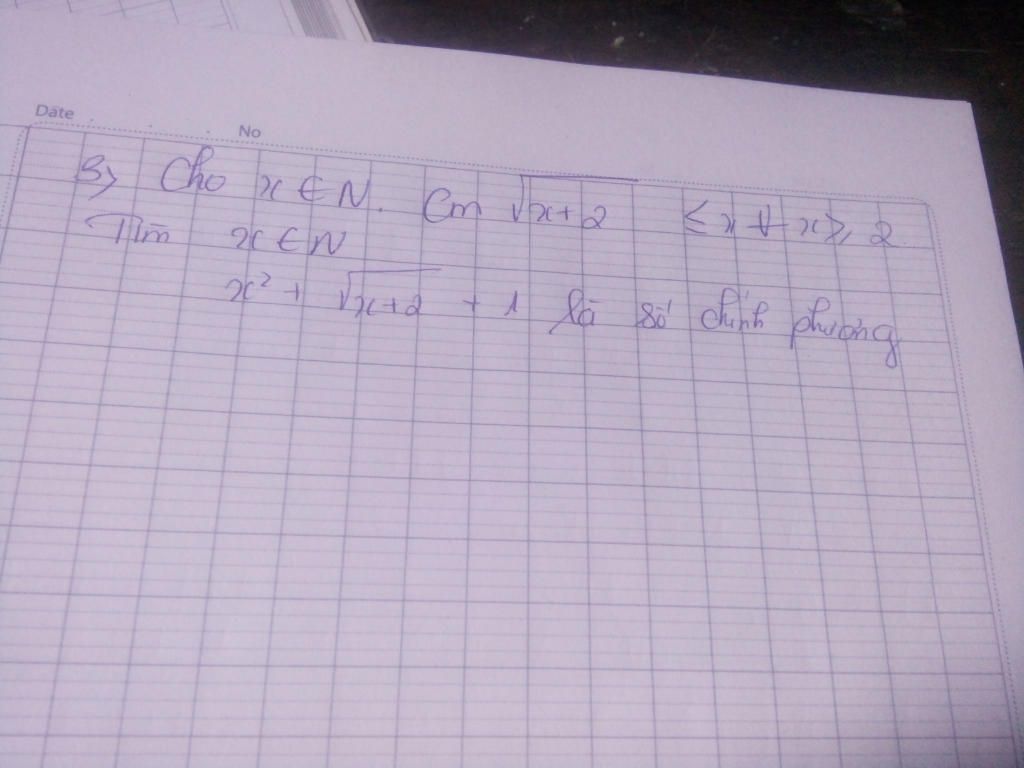 Date No
3> Cho x ∈ N. Cm √x+2 ≤ x ∀ x ≥ 2
Tìm x ∈ N
x² + √x+2 + 1 là số chính phương